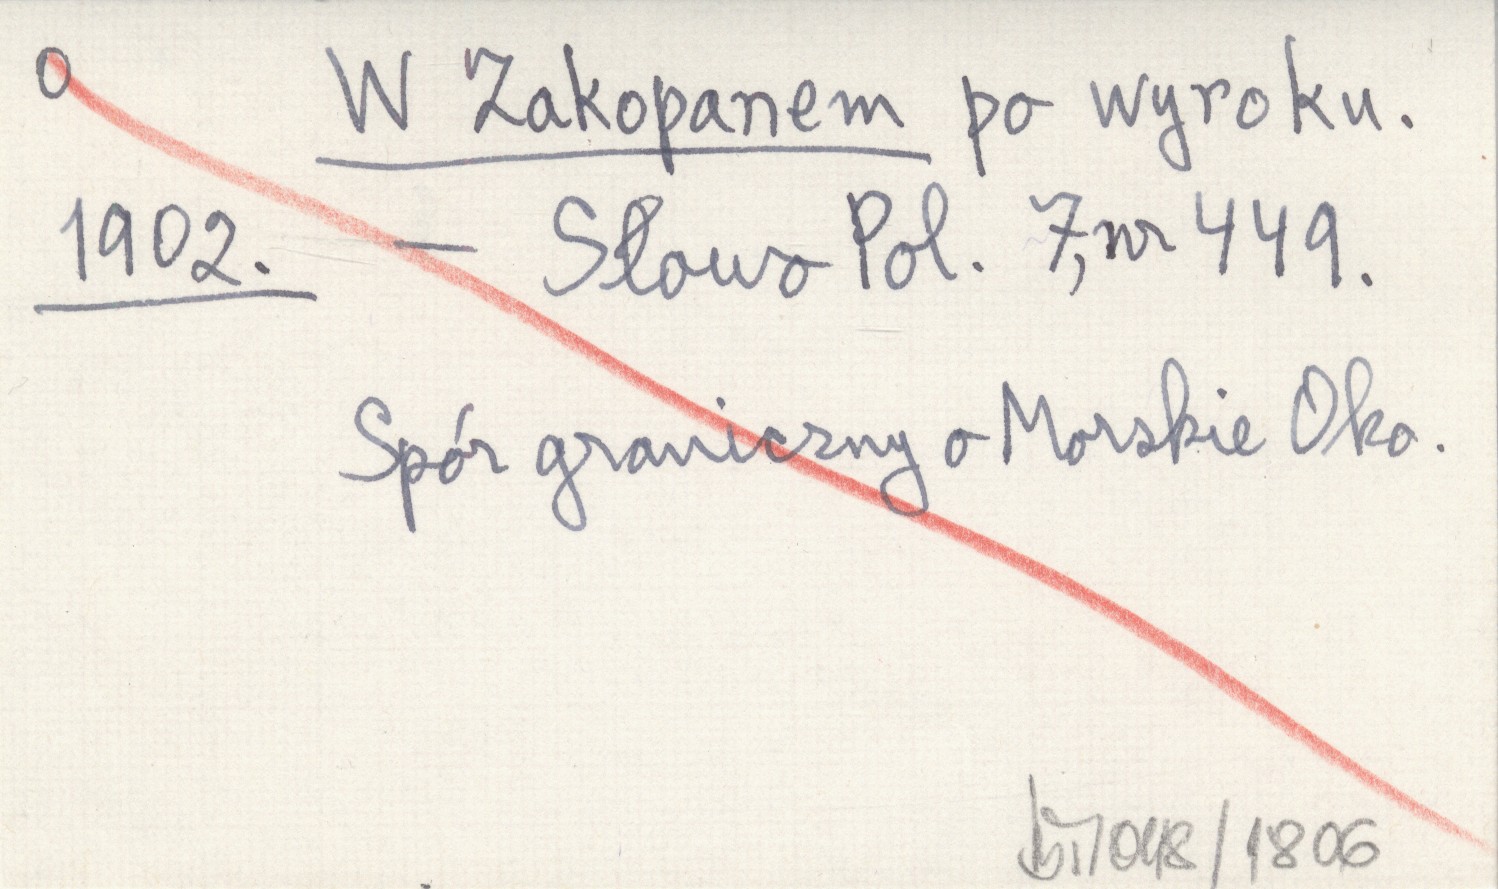 O W Zakopanem po wyroku.
1902. — Słowo Pol. 7, nr 449.
Spór graniczny o Morskie Oko.
048/1806